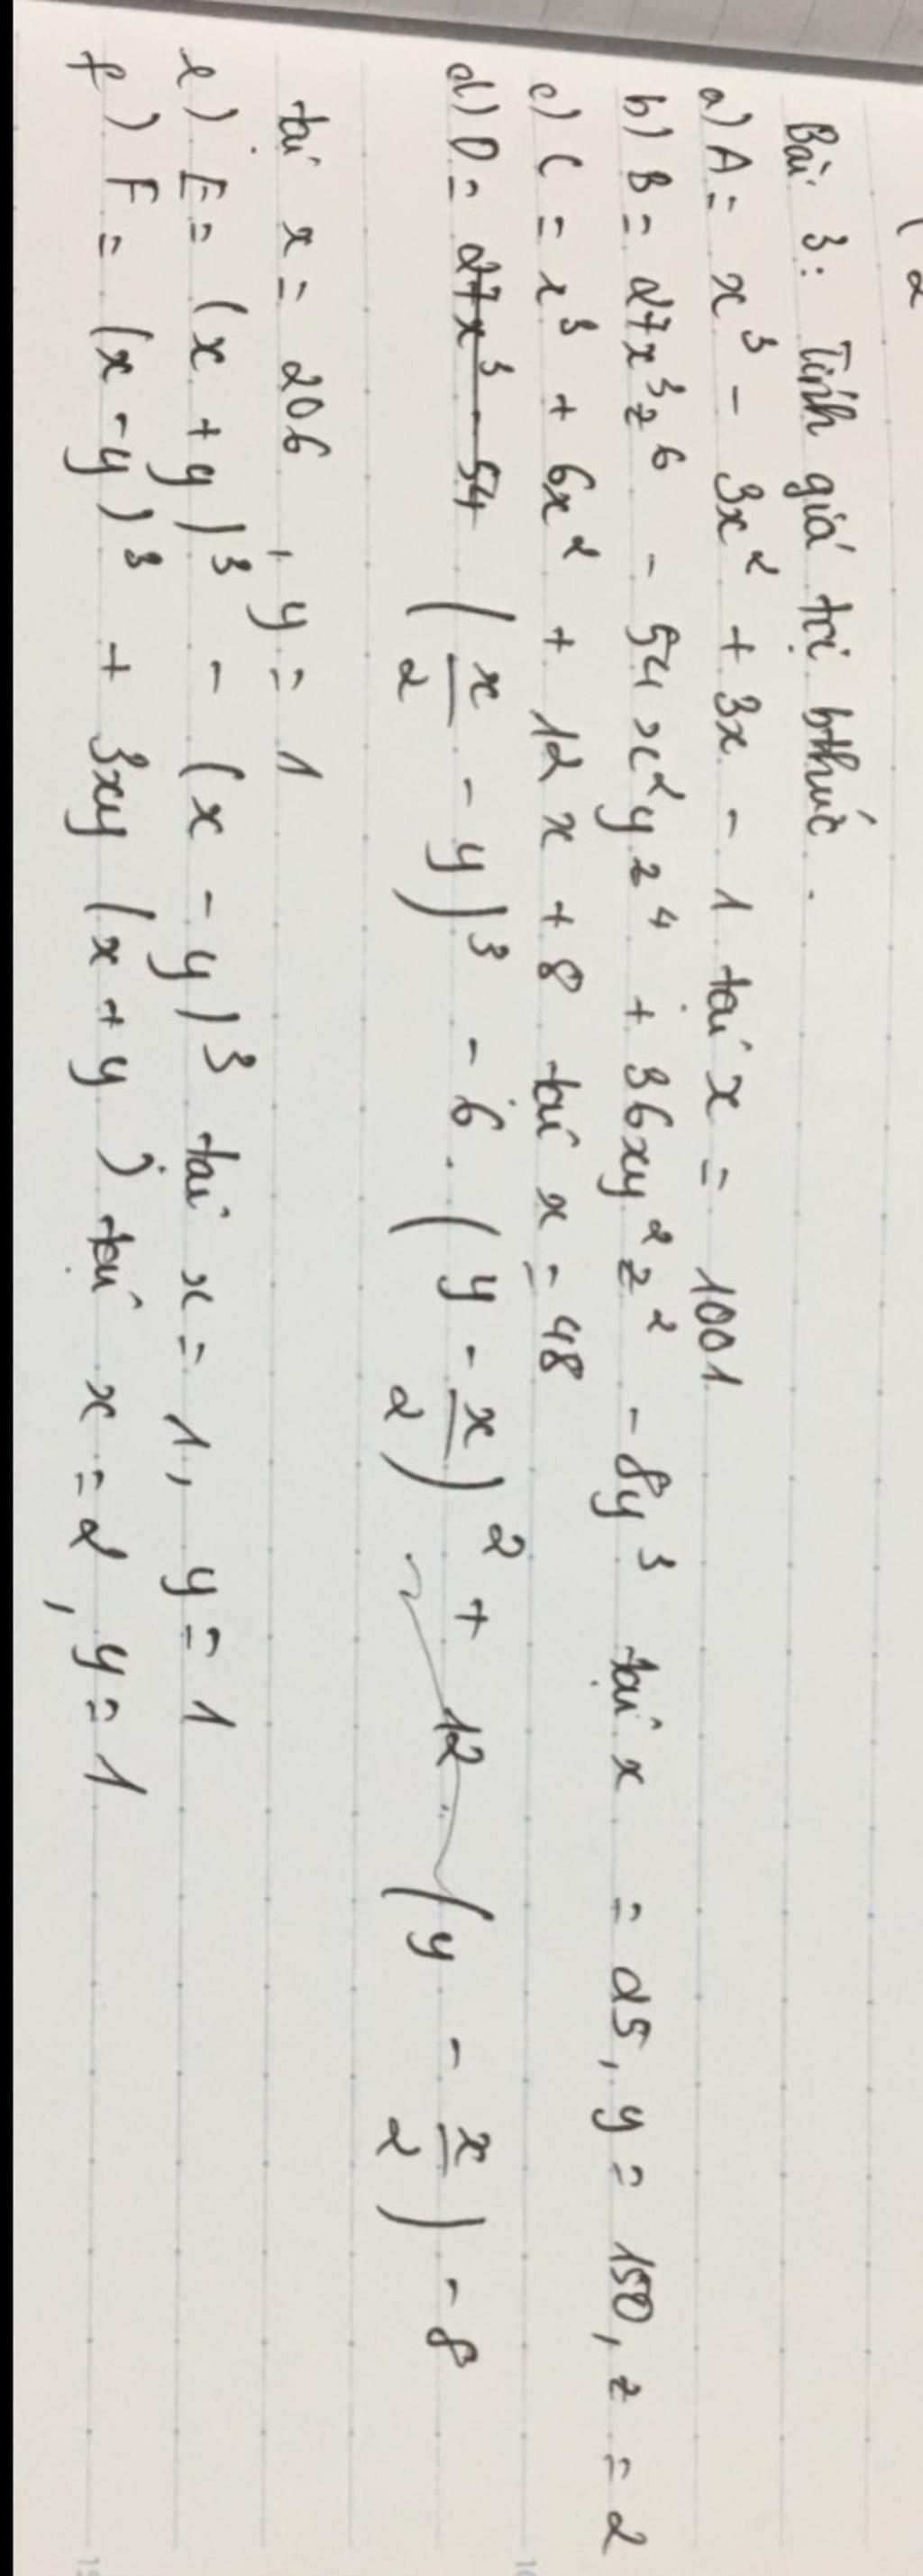 Bài 3: Tính giá trị bthức.
a) A = x³ - 3x² + 3x - 1 tại x = 1001
b) B = 27x³z⁶ - 54x²yz⁴ + 36xy²z² - 8y³ tại x = 25, y = 150, z = 2
c) C = x³ + 6x² + 12x + 8 tại x = 48
d) D = 27x³ - 54 (x/2 - y)³ - 6.(y - x/2)² + 12.(y - x/2) - 8
tại x = 206, y = 1
e) E = (x + y)³ - (x - y)³ tại x = 1, y = 1
f) F = (x - y)³ + 3xy (x + y) tại x = 2, y = 1